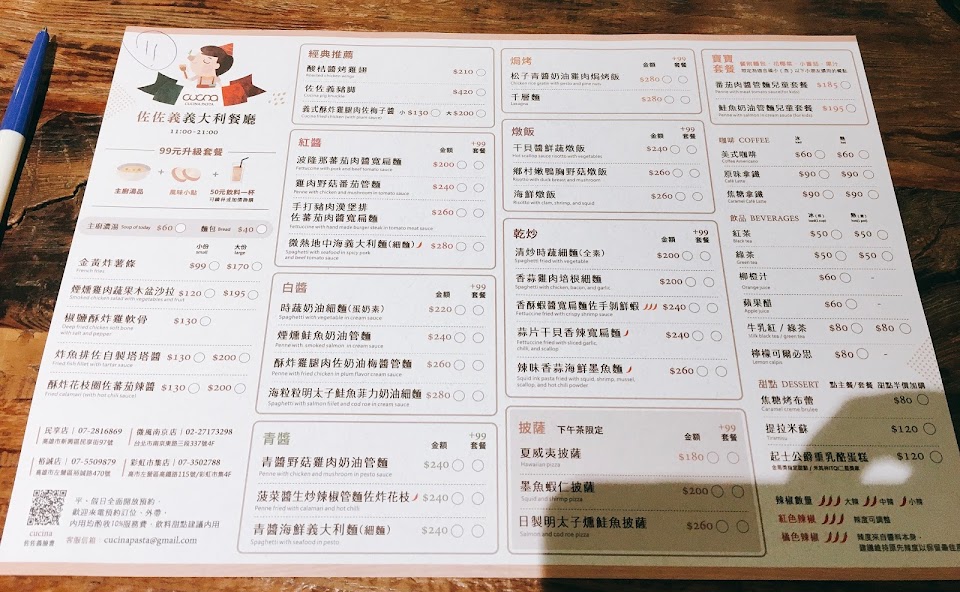 11
cucina
CUCINA PASTA
佐佐義義大利餐廳
11:00-21:00
99元升級套餐
主廚湯品 + 風味小點 + 50元飲料一杯
主廚濃湯 Soup of today $60 麵包 Bread $40
小份 small 大份 large
金黃炸薯條 $99 $170
French fries
煙燻雞肉蔬果木盆沙拉 $120 $195
Smoked chicken salad with vegetables and fruit
椒鹽酥炸雞軟骨 $130
Deep fried chicken soft bone
with salt and pepper
炸魚排佐自製塔塔醬 $130 $200
Fried fish fillet with tarter sauce
酥炸花枝圈佐蕃茄辣醬 $130 $200
Fried calamari (with hot chili sauce)
民享店 | 07-2816869
高雄市新興區民享街97號
微風南京店 | 02-27173298
台北市南京東路三段337號4F
裕誠店 | 07-5509879
高雄市左營區裕誠路470號
彩虹市集店 | 07-3502788
高市左營區高鐵路115號/彩虹市集4F
平、假日全面開放預約。
歡迎來電預約訂位、外帶。
內用均酌收10%服務費、飲料甜點建議內用
cucina
佐佐義臉書
客服信箱：cucinapasta@gmail.com
經典推薦
酸桔醬烤雞翅 $210
佐佐義豬腳 $420
義式酥炸雞腿肉佐梅子醬 小 $130 大 $200
紅醬 金額 +99 套餐
波隆那蕃茄肉醬寬扁麵 $200
Fettuccine with pork and beef tomato sauce
雞肉野菇蕃茄管麵 $240
Penne with chicken and mushroom in tomato sauce
手打豬肉漢堡排
佐蕃茄肉醬寬扁麵 $260
Fettuccine with hand made burger steak in tomato meat sauce
微熱地中海義大利麵(細麵) $280
Spaghetti with seafood in spicy pork
and beef tomato sauce
白醬 金額 +99 套餐
時蔬奶油細麵(蛋奶素) $220
Spaghetti with vegetable in cream sauce
煙燻鮭魚奶油管麵 $240
Penne with smoked salmon in cream sauce
酥炸雞腿肉佐奶油梅醬管麵 $260
Penne with fried chicken in plum flavor cream sauce
海粒粒明太子鮭魚菲力奶油細麵 $280
Spaghetti with salmon fillet and cod roe in cream sauce
青醬 金額 +99 套餐
青醬野菇雞肉奶油管麵 $240
Penne with chicken and mushroom in pesto
菠菜醬生炒辣椒管麵佐炸花枝 $240
Penne fried with calamari and hot chili
青醬海鮮義大利麵(細麵) $240
Spaghetti with seafood in pesto
焗烤 金額 +99 套餐
松子青醬奶油雞肉焗烤飯 $280
千層麵 $280
Lasagna
燉飯 金額 +99 套餐
干貝醬鮮蔬燉飯 $240
Hot scallop sauce risotto with vegetables
鄉村嫩鴨胸野菇燉飯 $260
Risotto with duck breast and mushroom
海鮮燉飯 $260
Risotto with clam, shrimp, and squid
乾炒 金額 +99 套餐
清炒時蔬細麵(全素) $200
Spaghetti fried with vegetable
香蒜雞肉培根細麵 $200
Spaghetti with chicken, bacon, and garlic
香酥蝦醬寬扁麵佐手剝鮮蝦 $240
Fettuccine fried with crispy shrimp sauce
蒜片干貝香辣寬扁麵 $240
Fettuccine fried with sliced garlic,
chili, and scallop
辣味香蒜海鮮墨魚麵 $260
Squid ink paste fried with squid, shrimp, mussel,
scallop, and hot chili powder
披薩 下午茶限定 金額 +99 套餐
夏威夷披薩 $180
Hawaiian pizza
墨魚蝦仁披薩 $200
Squid and shrimp pizza
日製明太子燻鮭魚披薩 $260
Salmon and cod roe pizza
寶寶
套餐
蕃茄肉醬管麵兒童套餐 $185
鮭魚奶油管麵兒童套餐 $195
咖啡 COFFEE 冰 熱
美式咖啡 $60 $60
Coffee Americano
原味拿鐵 $90 $90
Café Latte
焦糖拿鐵 $90 $90
Caramel Café Latte
飲品 BEVERAGES
紅茶 $50 $50
Black tea
綠茶 $50 $50
Green tea
柳橙汁 $60 -
Orange juice
蘋果醋 $60 -
Apple juice
牛乳紅 / 綠茶 $80 $80
Milk black tea / green tea
檸檬可爾必思 $80 -
Lemon calpis
甜點 DESSERT 點主餐/套餐 甜點半價加購
焦糖烤布蕾 $80
Caramel creme brulee
提拉米蘇 $120
Tiramisu
起士公爵重乳酪蛋糕 $120
辣椒數量 大辣 中辣 小辣
紅色辣椒 辣度可調整
橘色辣椒 辣度來自醬料本身，